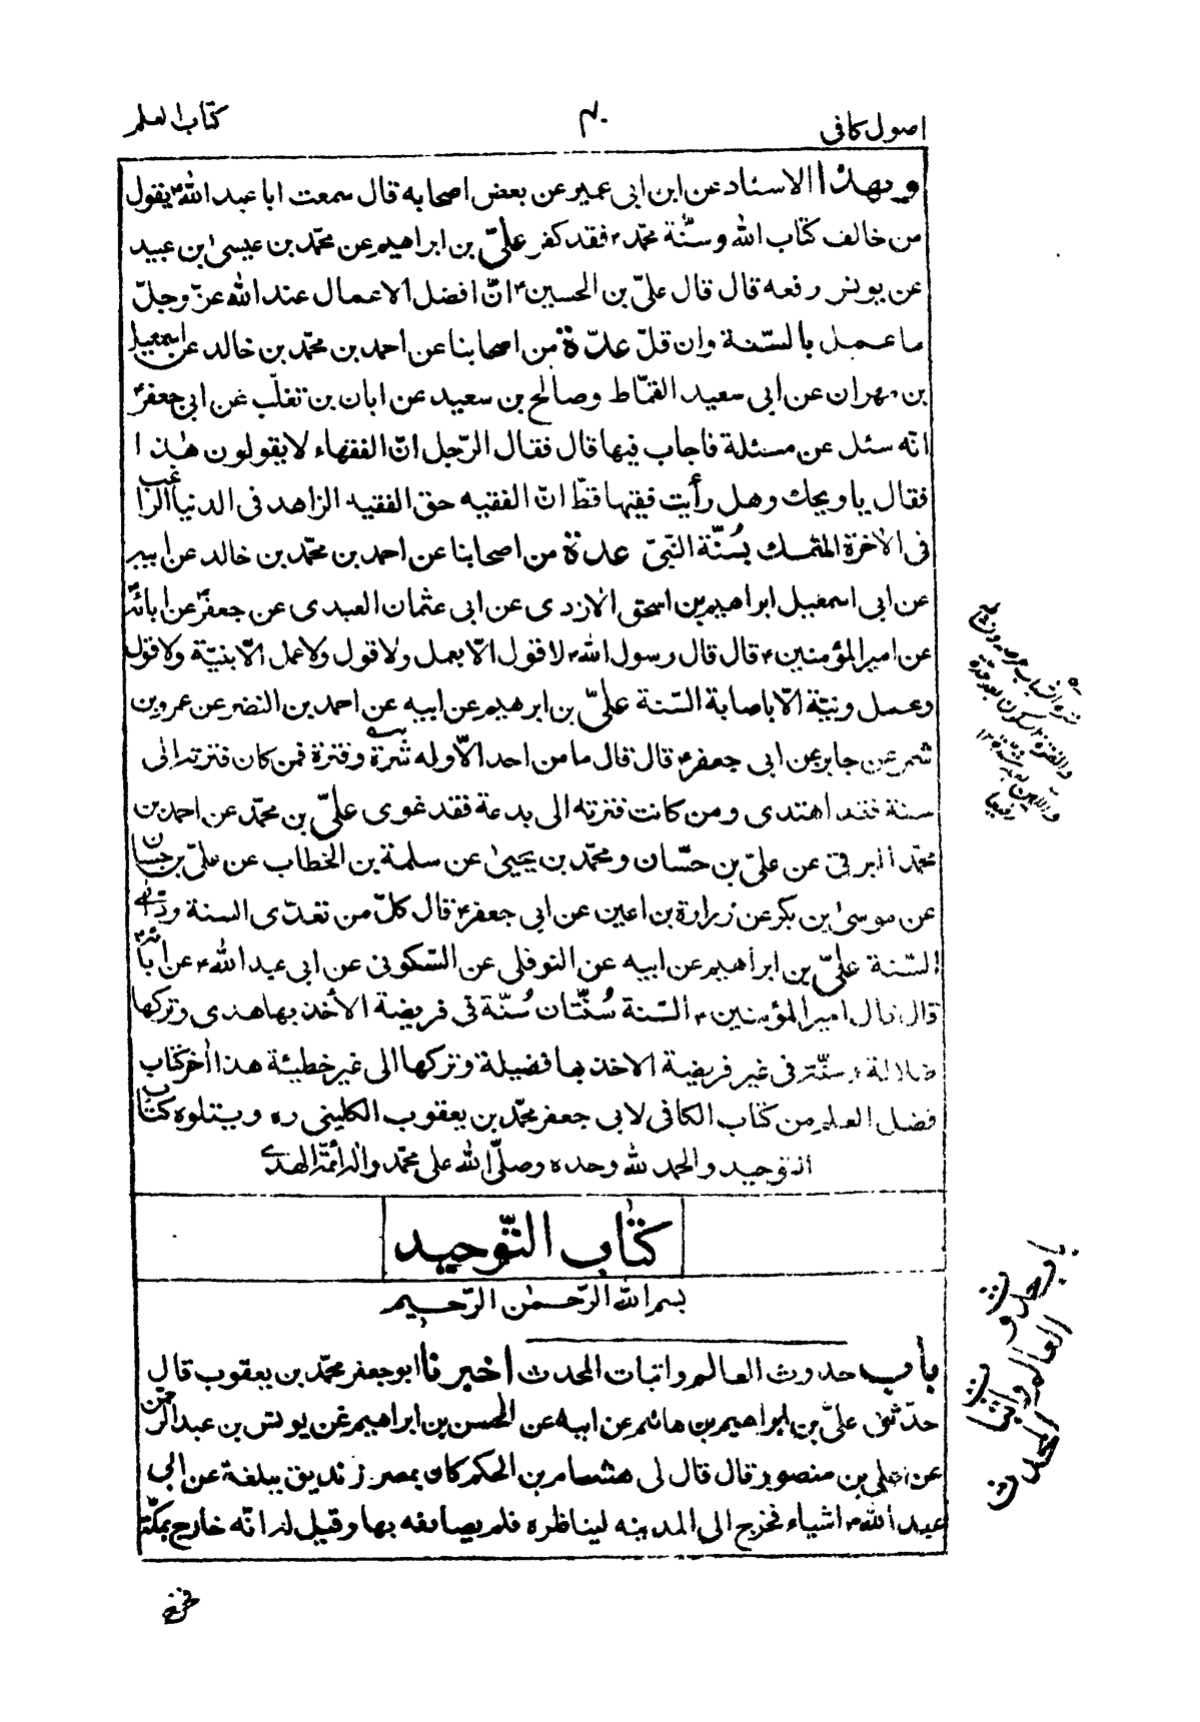 اصول كافى
۴۰
كتاب العلم
وبهذا الاسناد عن ابن ابى عمير عن بعض اصحابه قال سمعت ابا عبد الله ع يقول
من خالف كتاب الله وسنّة محمّد ص فقد كفر علىّ بن ابراهيم عن محمّد بن عيسىٰ بن عبيد
عن يونس رفعه قال قال علىّ بن الحسين ع انّ افضل الاعمال عند الله عزّ وجلّ
ما عمل بالسّنة وان قلّ عدّة من اصحابنا عن احمد بن محمّد بن خالد عن اسمعيل
بن مهران عن ابى سعيد القمّاط وصالح بن سعيد عن ابان بن تغلب عن ابى جعفر ع
انّه سئل عن مسئلة فاجاب فيها قال فقال الرّجل انّ الفقهاء لا يقولون هٰذا
فقال يا ويحك وهل رأيت فقيها قطّ انّ الفقيه حق الفقيه الزاهد فى الدنيا الراغب
فى الاخرة المتمسك بسُنّة النّبىّ عدة من اصحابنا عن احمد بن محمّد بن خالد عن ابيه
عن ابى اسمعيل ابراهيم بن اسحق الازدى عن ابى عثمان العبدى عن جعفر ع عن ابائه
عن امير المؤمنين ع قال قال رسول الله ص لا قول الّا بعمل ولا قول ولا عمل الّا بنيّة ولا قول
وعمل ونيّة الّا باصابة السّنة علىّ بن ابرهيم عن ابيه عن احمد بن النضر عن عمرو بن
شمر عن جابر عن ابى جعفر ع قال قال ما من احد الّا وله شرة وفترة فمن كان فترته الى
سنة فقد اهتدى ومن كانت فترته الى بدعة فقد غوى علىّ بن محمّد عن احمد بن
محمّد البرقى عن علىّ بن حسّان ومحمّد بن يحيىٰ عن سلمة بن الخطاب عن علىّ بن حسان
عن موسىٰ بن بكر عن زرارة بن اعين عن ابى جعفر ع قال كلّ من تعدّى السنة ردّ الى
السّنة علىّ بن ابراهيم عن ابيه عن النوفلى عن السّكونى عن ابى عبد الله ع عن ابائه ع
قال قال امير المؤمنين ع السّنة سُنّتان سُنّة فى فريضة الأخذ بها هدى وتركها
ضلالة وسنّة فى غير فريضة الاخذ بها فضيلة وتركها الى غير خطيئة هذا اخر كتاب
فضل العلم من كتاب الكافى لابى جعفر محمّد بن يعقوب الكلينى ره ويتلوه كتاب
التوحيد والحمد لله وحده وصلّى الله على محمّد واله ائمّة الهدى
كتاب التّوحيد
بسم الله الرّحمٰن الرّحيم
باب حدوث العالم واثبات المحدث اخبرنا ابو جعفر محمّد بن يعقوب قال
حدّثنى علىّ بن ابراهيم بن هاشم عن ابيه عن الحسن بن ابراهيم عن يونس بن عبد الرحمن
عن على بن منصور قال قال لى هشام بن الحكم كان بمصر زنديق يبلغه عن ابى
عبد الله ع اشياء فخرج الى المدينه ليناظره فلم يصادفه بها وقيل له انّه خارج بمكّة
باب حدوث
العالم واثبات
المحدث
فخرج